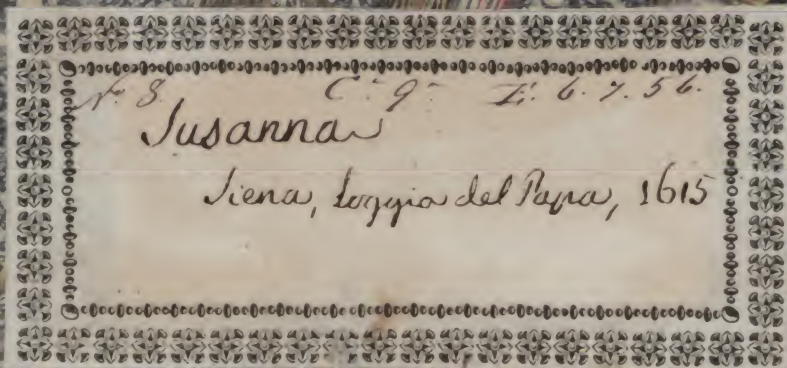 N.° 8. C.° 9.° E: 6. 7. 56.
Susanna
Siena, Loggia del Papa, 1615